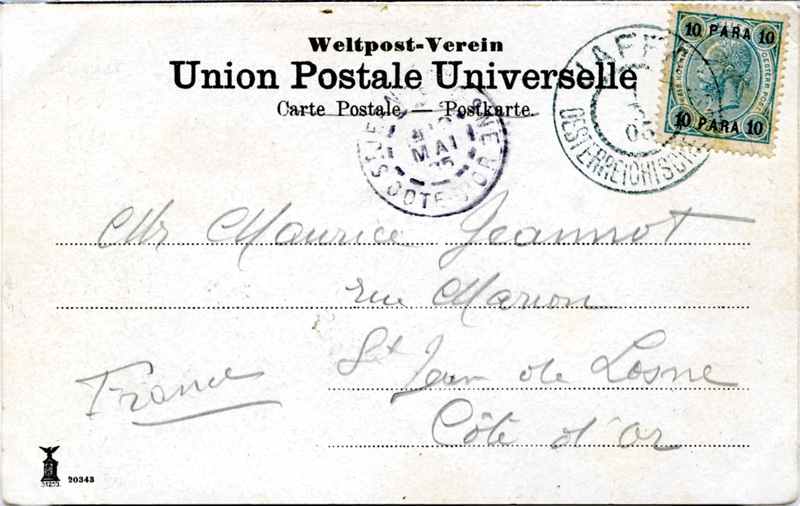 Weltpost-Verein
Union Postale Universelle
Carte Postale — Postkarte.
10 PARA 10
10 PARA 10
JAFFA
05
OESTERREICHISCHE
MAI
05
COTE-D'OR
Mr Maurice Jeannot
rue Marion
St Jean de Losne
Côte d'Or
France
20343